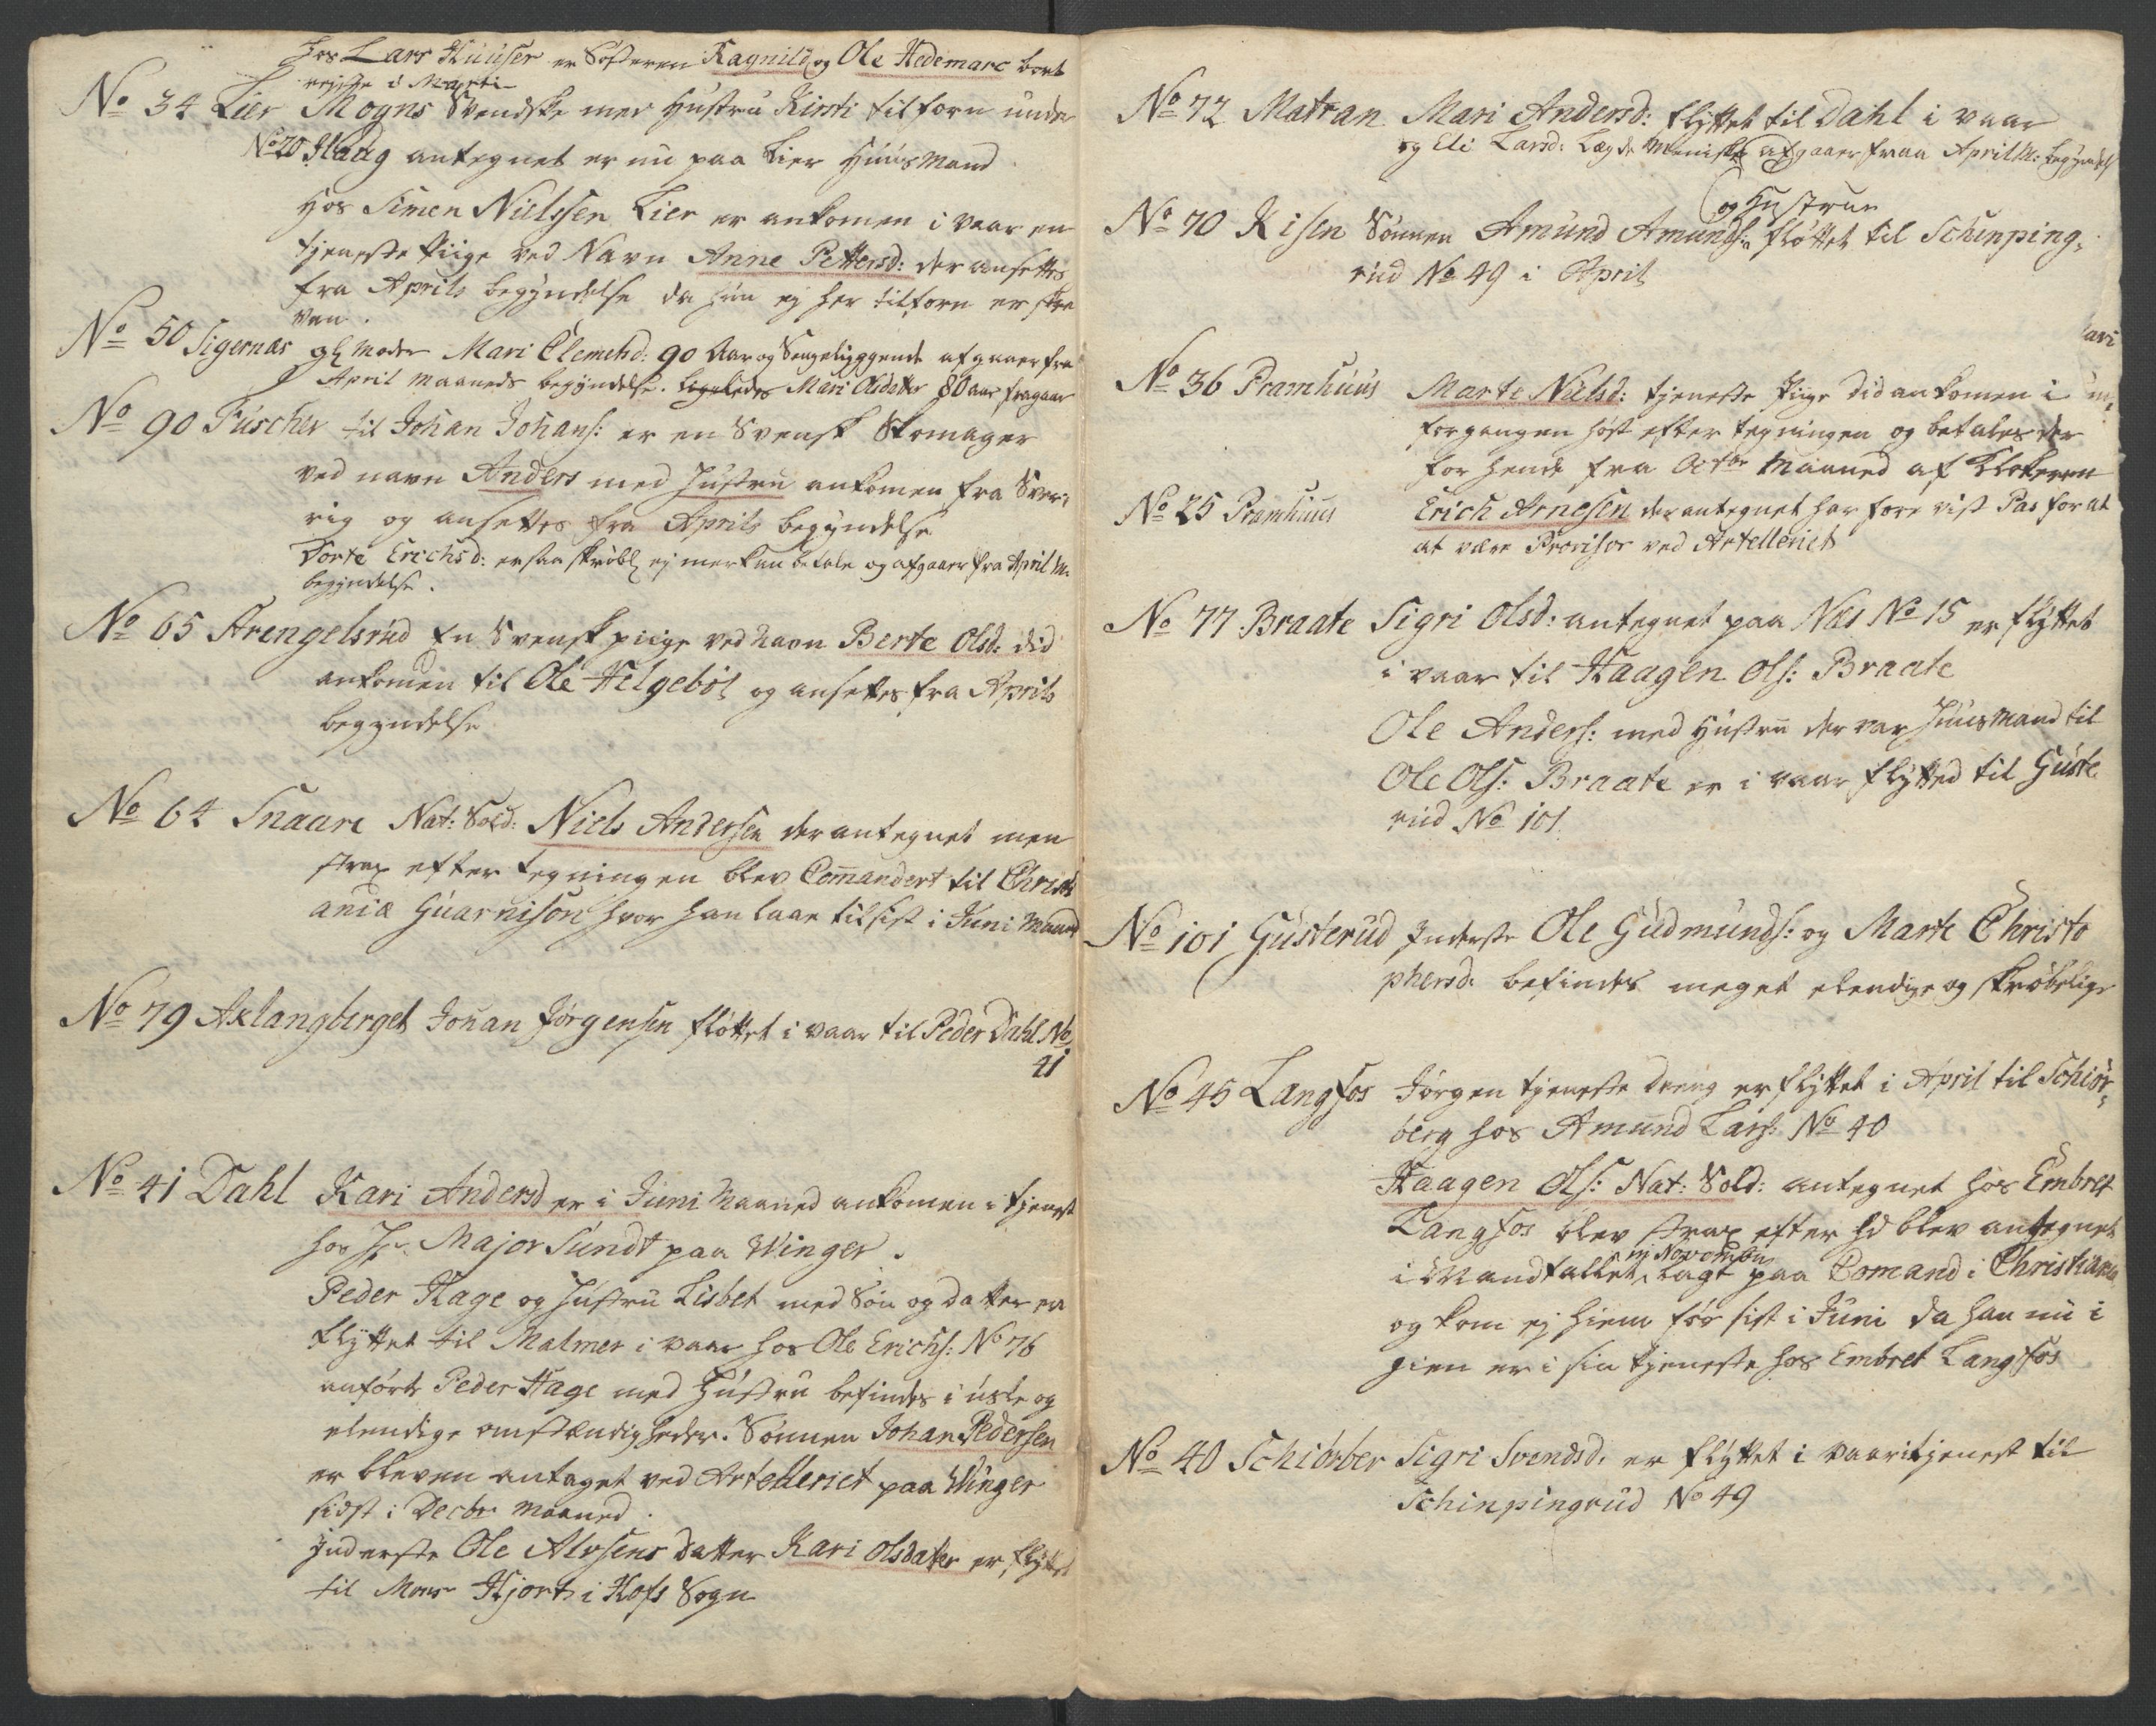 Hos Lars Huuser er Søsteren Ragnild og Ole Hedemarc bort
rejste i Marti
No 34 Lier Mogns Svendske med Hustru Kirsti tilforn under
No 20 Haug antegnet er nu paa Lier Huusmand
Hos Simen Nielssen Lier er ankomen i vaar en
tjeneste Piige ved Navn Anne Pettersd: der ansettes
fra Aprils begyndelse da hun ej her tilforn er skre
ven.
No 50 Sigernæs gl Moder Mari Clemetsd: 90 Aar og Sengeliggende afgaaer fra
April Maaneds begyndelse. ligeledes Mari Olsdatter 80 aar fragaar
No 90 Fuscher til Johan Johans: er en Svensk Skomager
ved navn Anders med Hustru ankomen fra Sver,
rig og ansettes fra Aprils begyndelse
Dorte Erichsd: er saa skrøbl ej mer kan betale og afgaaer fra April M:
begyndelse.
No 65 Arengelsrud En Svensk piige ved Navn Berte Olsd: did
ankomen til Ole Helgeböl og ansettes fra Aprils
begyndelse
No 64 Snaare Nat: Sold: Niels Andersen der antegnet men
strax efter tegningen blev Comandert til Christi
ania Guarnison hvor han laae til sist i Juni Maaned
No 79 Axlangberget Johan Jørgensen fløttet i vaar til Peder Dahl No
41
No 41 Dahl Kari Andersd er i Juni Maaned ankomen i tjenest
hos Hr Major Sundt paa Winger.
Peder Hage og Hustru Lisbet med Søn og Datter er
flyttet til Malmer i vaar hos Ole Erichs: No 76
anførte Peder Hage med Hustru befindes i usle og
elendige omstændigheder. Sønnen Johan Pedersen
er bleven antaget ved Artelleriet paa Winger
sidst i Decbr Maaned.
Inderste Ole Alvsens datter Kari Olsdatter er flyttet
til Mons Hjorts i Hofs Sogn
No 72 Matran Mari Andersd: flyttet til Dahl i vaar
og Eli Larsd: Lægds Menniske afgaaer fraa April M: begyndels
og Hustrue
No 70 Kisen Sønnen Amund Amunds: fløttet til Schinping,
rud No 49 i April
ari
No 36 Pramhuus Marte Nielsd: tjeneste Piige did ankomen i
forgangen høst efter tegningen og betales der
for hende fra Octbr Maaned af Klokkeren
No 25 Pramhuus Erich Arnesen der antegnet har fore vist Pas for at
at være Provisor ved Artelleriet
No 77 Braate Sigri Olsd: antegnet paa Næs No 15 er flyttet
i vaar til Haagen Ols: Braate
Ole Anders: med Hustru der var Huusmand til
Ole Ols: Braate er i vaar flytted til Guste
rud No 101
No 101 Gusterud Inderste Ole Gudmunds: og Marte Christo
phersd: befindes meget elendige og skrøbelige
No 45 Langfos Jørgen tjeneste dreng er flyttet i April til Schiør,
berg hos Amund Lars: No 40
Haagen Ols: Nat: Sold: antegnet hos Embret
Langfos blev strax efter hd blev antegnet
in November
i Mandtallet lagt paa Comand i Christiania
og kom ej hiem før sist i Juni da han nu i
gien er i sin tjeneste hos Embret Langfos
No 40 Schiørber Sigri Svendsd: er flyttet i vaar i tjenest til
Schinpingrud No 49